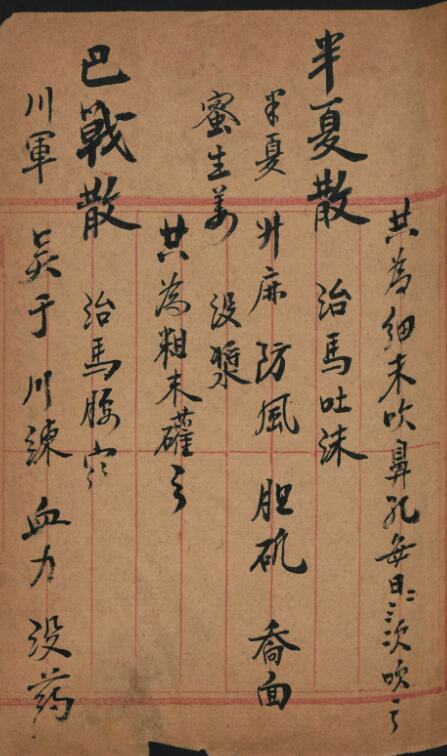 共為細末吹鼻孔每日二三次吹之
半夏散 治馬吐沫
半夏 升麻 防風 胆矾 喬面
蜜 生姜 没漿
共為粗末灌之
巴戟散 治馬腰
川軍 吴于 川練 血力 没药